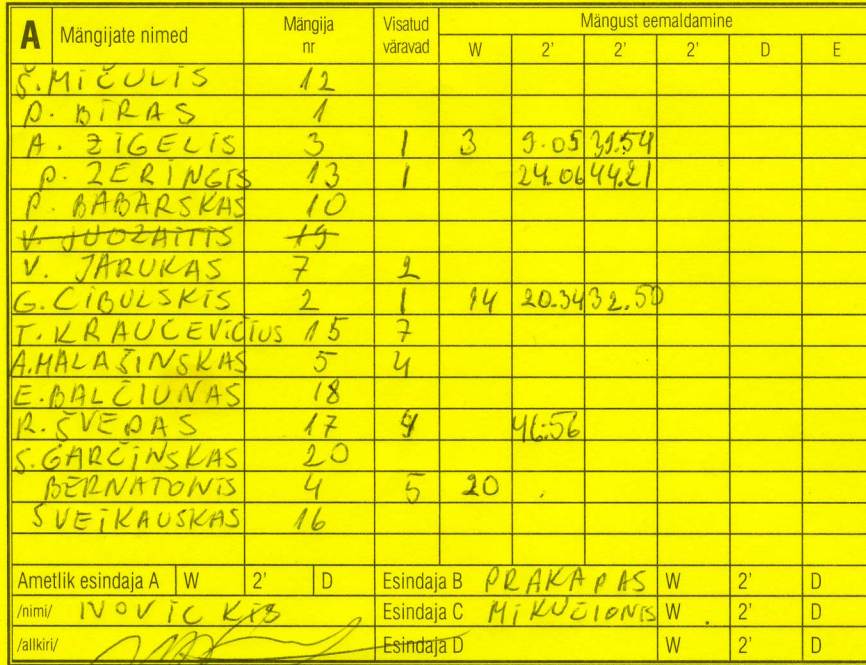 A Mängijate nimed Mängija nr Visatud väravad Mängust eemaldamine
W 2' 2' 2' D E
Š. MIČULIS 12
P. BIRAS 1
A. ŽIGELIS 3 1 3 9.05 39.54
P. ZERINGIS 13 1 24.06 44.21
P. BABARSKAS 10
V. JUOZAITIS 19
V. JARUKAS 7 2
G. CIBULSKIS 2 1 14 20.34 32.50
T. KRAUCEVIČIUS 15 7
A. MALAŠINSKAS 5 4
E. BALČIUNAS 18
R. ŠVEDAS 17 4 46:56
S. GARČINSKAS 20
BERNATONIS 4 5 20
ŠVEIKAUSKAS 16
Ametlik esindaja A W 2' D Esindaja B PRAKAPAS W 2' D
/nimi/ NOVICKIS Esindaja C MIKUČIONIS W 2' D
/allkiri/ Esindaja D W 2' D